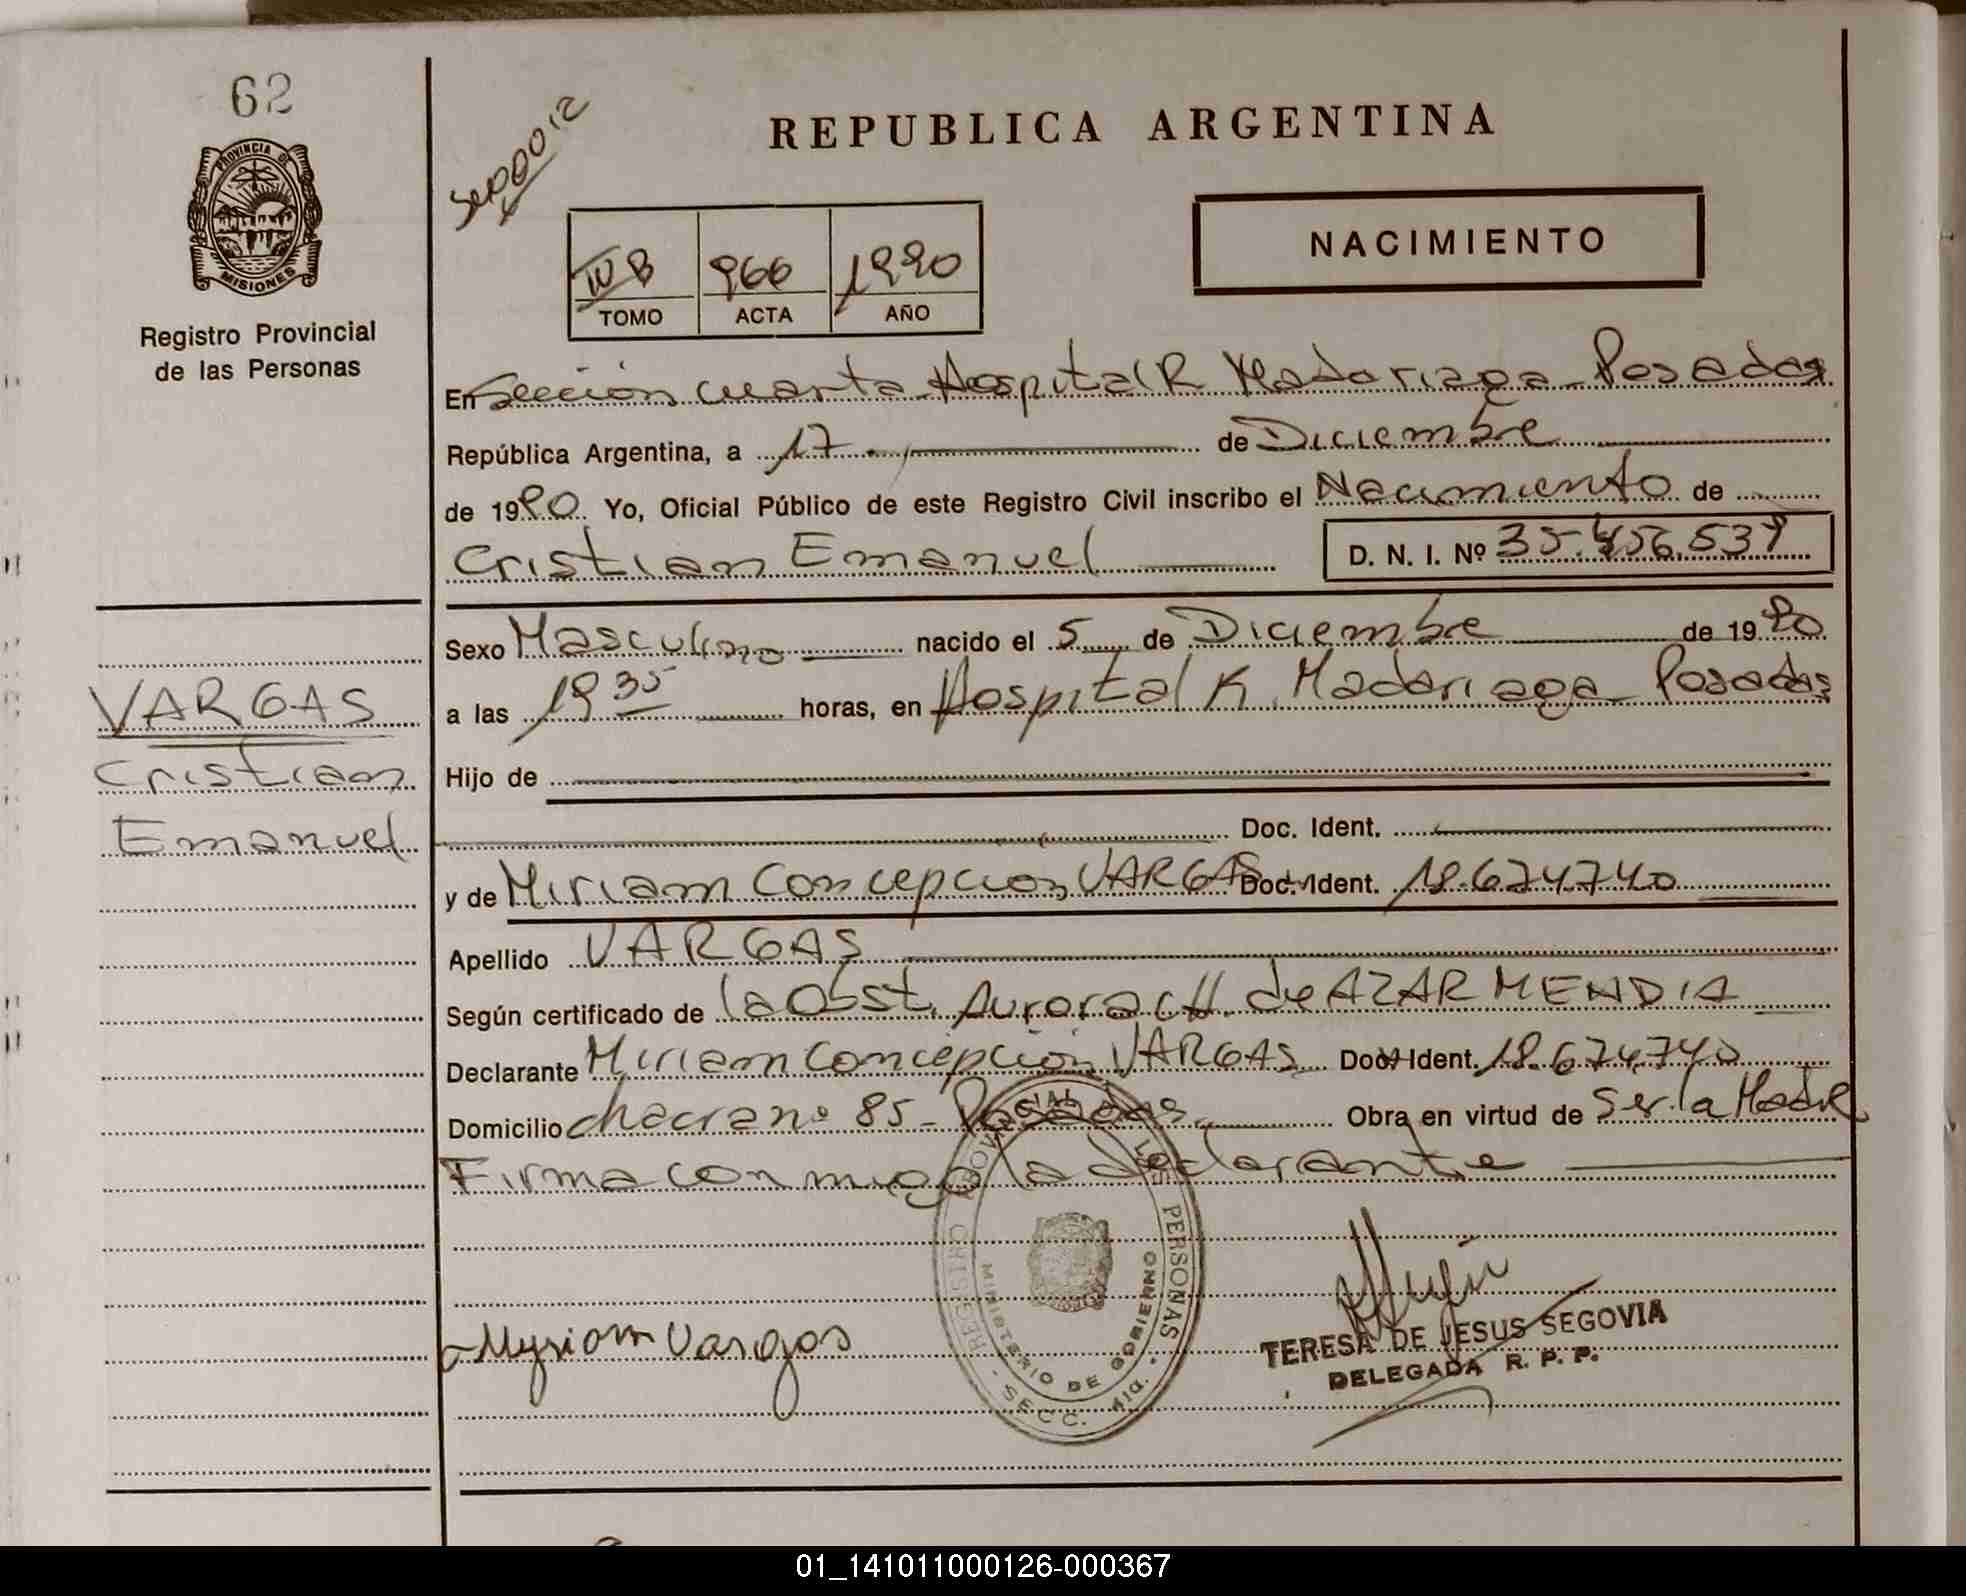 62
PROVINCIA DE
MISIONES
Registro Provincial
de las Personas
REPUBLICA ARGENTINA
NACIMIENTO
IV B 966 1990
TOMO ACTA AÑO
En Sección cuarta Hospital R Madariaga Posadas
República Argentina, a 17 de Diciembre
de 1990 Yo, Oficial Público de este Registro Civil inscribo el Nacimiento de
Cristian Emanuel D. N. I. Nº 35.456.537
Sexo Masculino nacido el 5 de Diciembre de 1990
a las 19 35 horas, en Hospital R. Madariaga Posadas
Hijo de
Doc. Ident.
y de Miriam Concepcion VARGAS Doc. Ident. 18.674.740
Apellido VARGAS
Según certificado de la Obst. Aurora CH. de AZARMENDIA
Declarante Miriam Concepción VARGAS Doc. Ident. 18.674.740
Domicilio chacra nº 85 - Posadas Obra en virtud de Ser la Madre
Firma conmigo la declarante
VARGAS
Cristian
Emanuel
Myriam Vargas
REGISTRO PROVINCIAL DE LAS PERSONAS
MINISTERIO DE GOBIERNO
- SECC. 4ta. -
TERESA DE JESUS SEGOVIA
DELEGADA R. P. P.
01_141011000126-000367